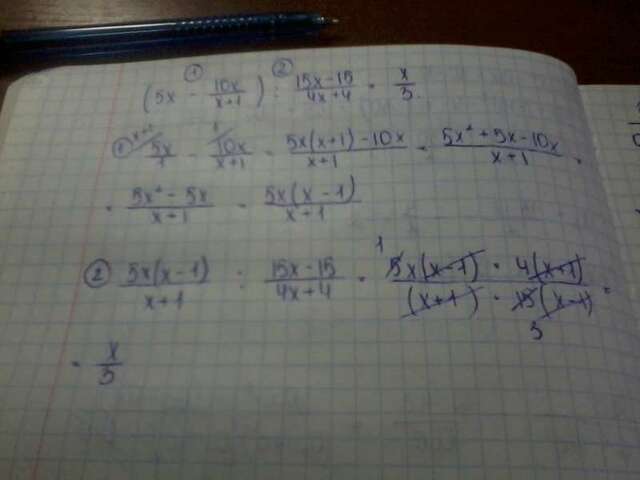 ① ②
(5x - 10x/(x+1)) : (15x-15)/(4x+4) = x/3.
① 5x/1 (x+1) - 10x/(x+1) (1) = (5x(x+1)-10x)/(x+1) = (5x²+5x-10x)/(x+1) =
= (5x²-5x)/(x+1) = 5x(x-1)/(x+1)
② 5x(x-1)/(x+1) : (15x-15)/(4x+4) = (5x(x-1) · 4(x+1))/((x+1) · 15(x-1)) =
1
3
= x/3